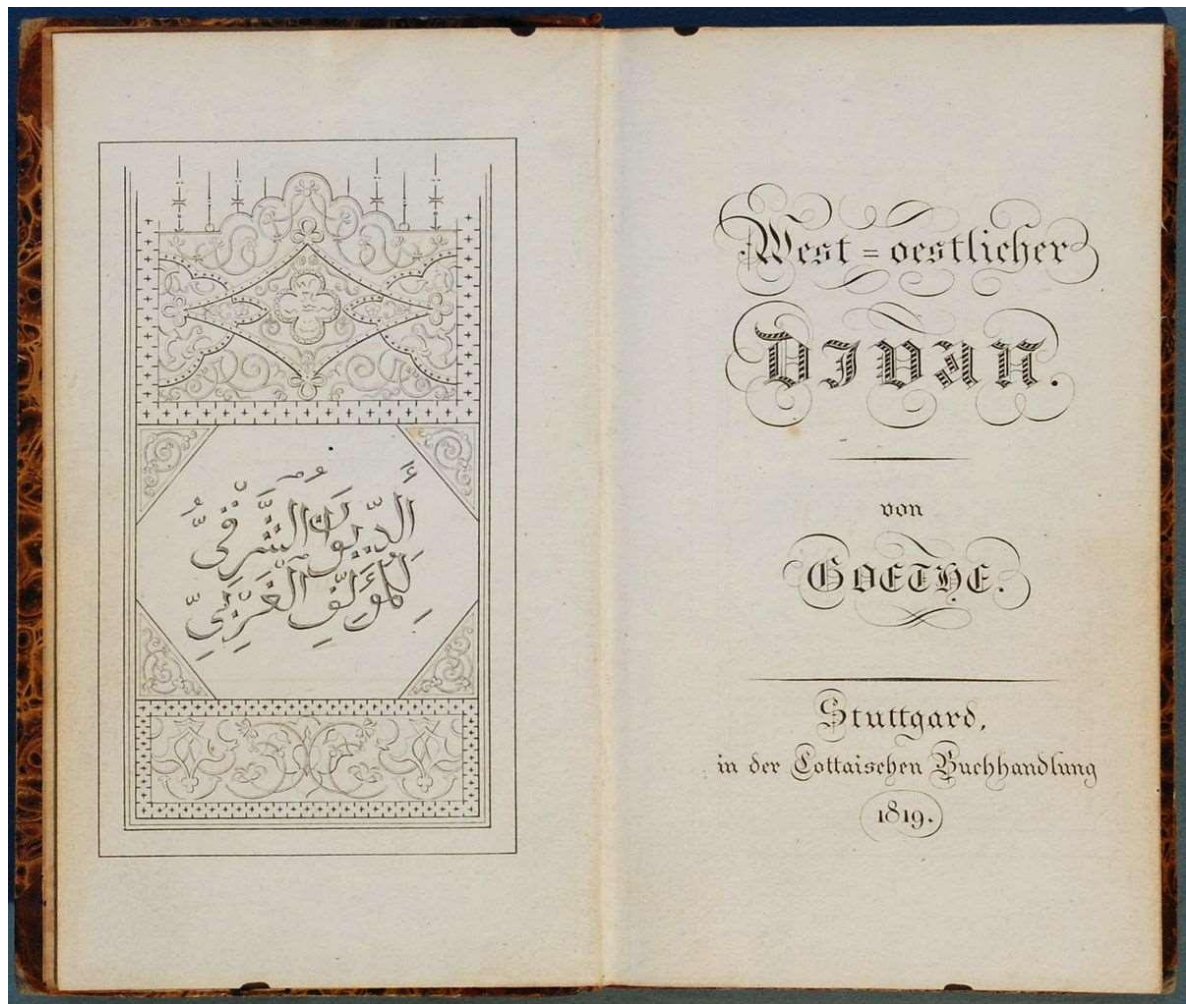 أَلدِّيوَانُ ٱلشَّرْقِيُّ
لِلْمُؤَلِّفِ ٱلْغَرْبِيِّ
West=oestlicher
DIVAN.
von
GOETHE.
Stuttgard,
in der Cottaischen Buchhandlung
1819.